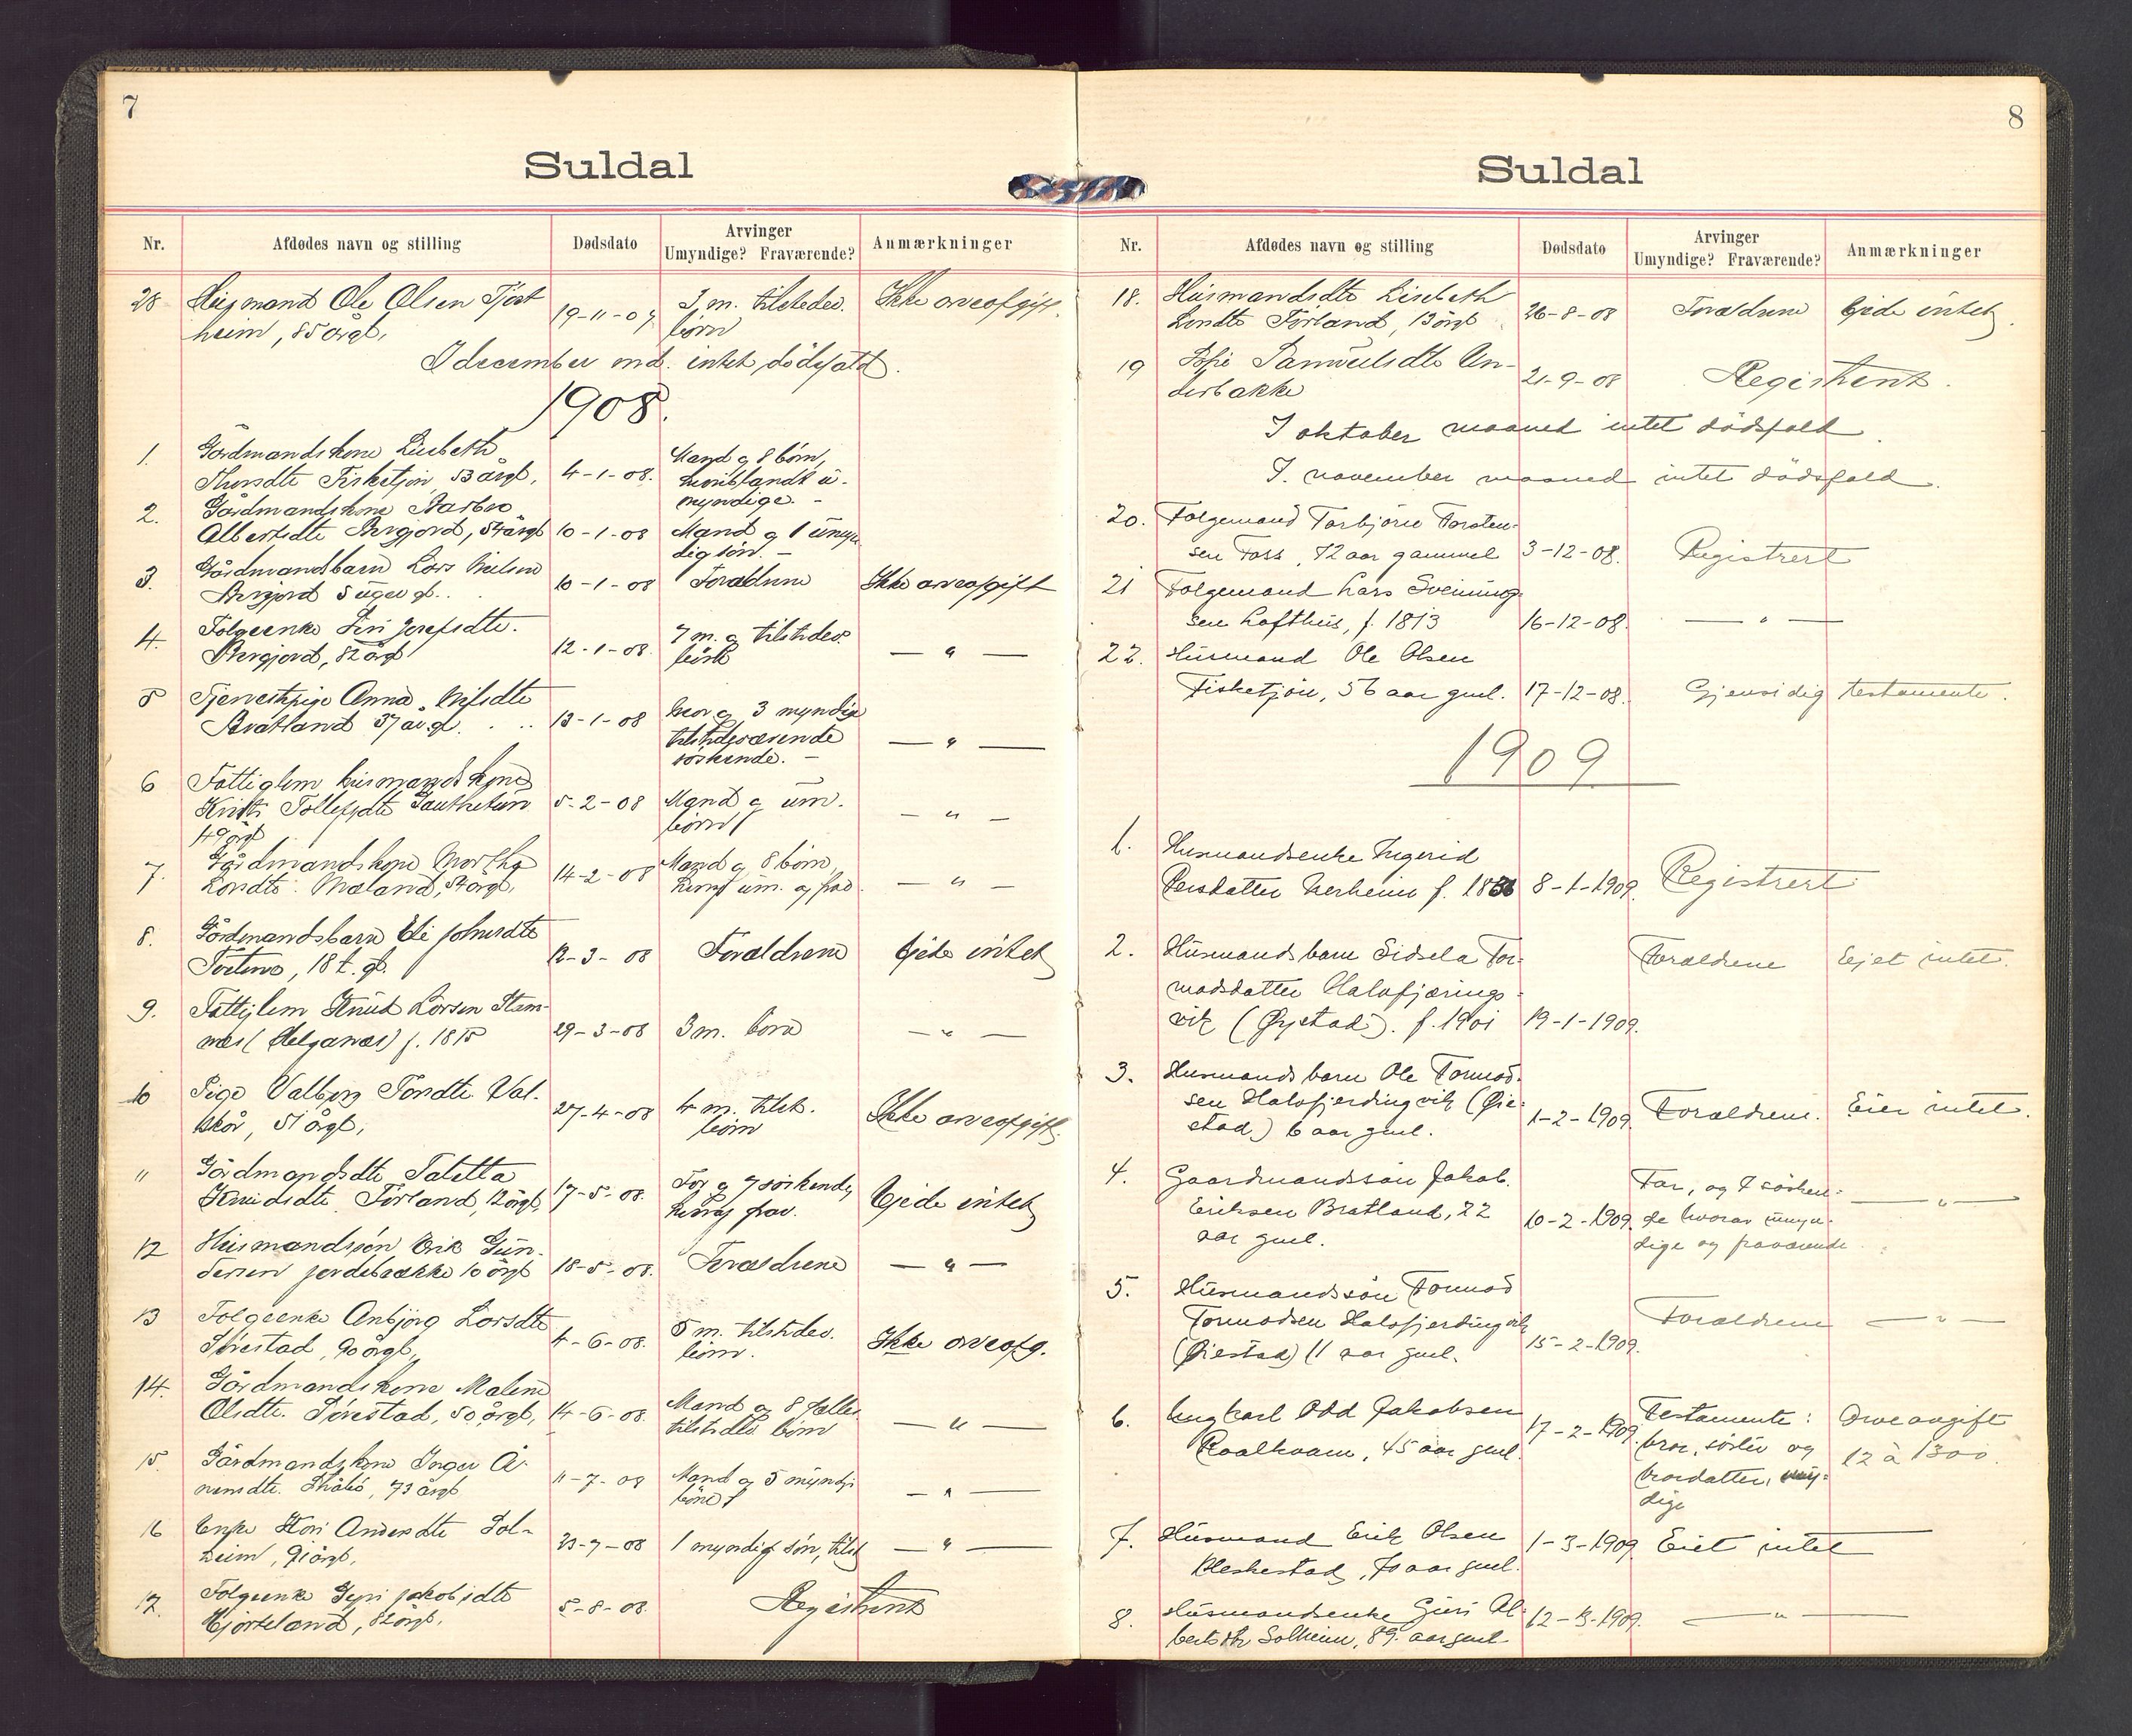 7
Suldal
Nr.
Afdødes navn og stilling
Dødsdato
Arvinger
Umyndige? Fraværende?
Anmærkninger
28 Husmand Ole Olsen Tjøst
heim, 85 årgl, 19-11-07 3 m. tilstedev. Ikke arveafgift.
børn
I december md. intet dödsfald.
1908.
1. Gårdmandskone Lisbeth
Thorsdtr Fisketjön, 53 årgl, 4-1-08. Mand og 8 börn,
hvoriblandt u-
myndige. -
2. Gårdmandskone Barbro
Albertsdtr Bergjord, 54årgl 10-1-08 Mand og 1 umyn
dig sön. -
3. Gårdmandsbarn Lars Nielsen
Bergjord 5 uger gl. 10-1-08 Forældrene Ikke arveafgift
4. Folgeenke Siri Josefsdtr.
Bergjord, 82 årgl 12-1-08. 7 m. og tilstedev.
börn — " —
5 Tjenestpige Anna Nilsdtr
Bratland 37 år gl. 13-1-08 mor og 3 myndige
tilstedeværende
söskende. - — " —
6 Fattiglem husmandskone
Kristi Tollefsdtr 5-2-08 Mand og um.
49 årgl börn — " —
7. Gårdmandskone Martha
Larsdtr. Mæland, 54 årgl, 14-2-08 Mand og 8 börn,
um. og frav. — " —
8. Gårdmandsbarn Eli Johnsdtr
18 t. gl. 12-3-08 Forældrene Ejede intet
9. Fattiglem Knud Larsen Stram-
nes (Helganæs) f. 1815 29-3-08 3 m. børn — " —
10 Pige Valborg Tordtr. Val-
skår, 51 årgl, 27-4-08 4 m. tilst.
börn Ikke arveafgift.
" Gårdmandsdtr Taletta
Knudsdtr. Førland, 12årgl, 17-5-08. Far og 7 söskende
frav. Ejede intet
12 Husmandssön Erik Gun-
dersen jordebrække 10 årgl 18-5-08. Forældrene — " —
13 Folgeenke Anbjörg Larsdtr
Sørestad, 90 årgl, 4-6-08. 5 m. tilstedev.
börn. Ikke arveafg.
14. Gårdmandskone Malene
Olsdtr. Sørestad, 50 årgl, 14-6-08. Mand og 8 fælles
tilstedev börn — " —
15 Gårdmandskone Inger A-
mundtr. 73 årgl 11-7-08 Mand og 5 myndige
börn — " —
16 Enke Kari Andersdtr Sol-
heim, 91årgl, 23-7-08 1 myndig sön, tilst — " —
17. Folgeenke Guri Jakobsdtr
Hjorteland, 82årgl, 5-8-08. Registrert
8
Suldal
Nr.
Afdødes navn og stilling
Dødsdato
Arvinger
Umyndige? Fraværende?
Anmærkninger
18. Husmandsdtr Lisebeth
Førland, 13 årgl 26-8-08 Forældrene Ejede intet.
19 Samuelsdtr Un-
derbakke 21-9-08 Registrert.
I oktober maaned intet dödsfald.
I november maaned intet dödsfald.
20. Folgemand Torbjörn Torsten-
sen Foss, 72 aar gammel 3-12-08. Registrert
21 Folgemand Lars Sveinung
sen Lofthus, f. 1813 16-12-08. — " —
22. Husmand Ole Olsen
Fisketjön, 56 aar gml. 17-12-08. Gjensidig testamente.
1909
1. Husmandsenke Ingerid
Persdatter Nerheim f. 8-1-1909. Registrert
2. Husmandsbarn Sidsela Tor- Forældrene Ejet intet.
modsdatter Halofjærings-
vik (Øystad). f. 1901 19-1-1909.
3. Husmandsbarn Ole Tormod-
sen Halofjerdingvik (Øie-
stad) 6 aar gml. 1-2-1909. Forældrene. Eier intet.
4. Gaardmandssøn Jakob
Eriksen Bratland, 22
aar gml. 10-2-1909. Far, og 7 sösken-
de hvorav umyn-
dige og fraværende — " —
5. Husmandssön Tormod
Tormodsen Halofjerdingvik
(Øiestad) 11 aar gml. 15-2-1909. Forældrene — " —
6. Ungkarl Odd Jakobsen
Roalkvam, 45 aar gml. 17-2-1909. Testamente:
bror, söster og
brordatter, myn-
dige Arveavgift
12 à 1300.
7. Husmand Erik Olsen
Bleskestad, 70 aar gml. 1-3-1909. Eiet intet
8. Husmandsenke Guri Al-
bertsdtr Solheim, 89 aar gml 12-3-1909. — " —